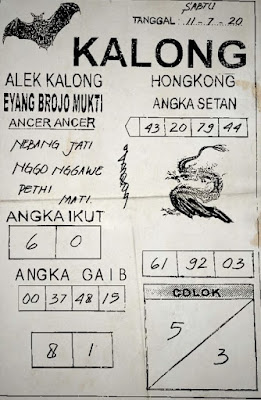 SABTU
TANGGAL : 11-7-20
KALONG
ALEK KALONG
EYANG BROJO MUKTI
ANCER ANCER
NEBANG JATI
NGGO NGGAWE
PETHI
MATI.
ANGKA IKUT
6 0
ANGKA GAIB
00 37 48 15
8 1
HONGKONG
ANGKA SETAN
43 20 79 44
61 92 03
COLOK
5
3